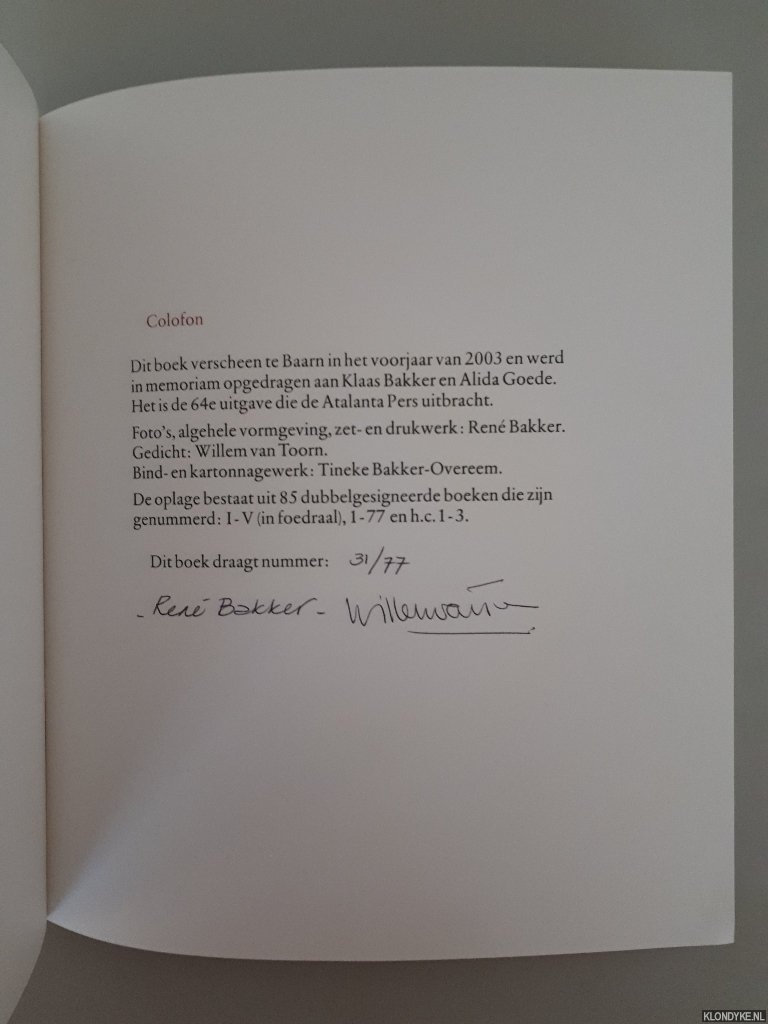 Colofon
Dit boek verscheen te Baarn in het voorjaar van 2003 en werd
in memoriam opgedragen aan Klaas Bakker en Alida Goede.
Het is de 64e uitgave die de Atalanta Pers uitbracht.
Foto's, algehele vormgeving, zet- en drukwerk: René Bakker.
Gedicht: Willem van Toorn.
Bind- en kartonnagewerk: Tineke Bakker-Overeem.
De oplage bestaat uit 85 dubbelgesigneerde boeken die zijn
genummerd: I - V (in foedraal), 1-77 en h.c. 1-3.
Dit boek draagt nummer: 31/77
- René Bakker - Willem van
KLONDYKE.NL